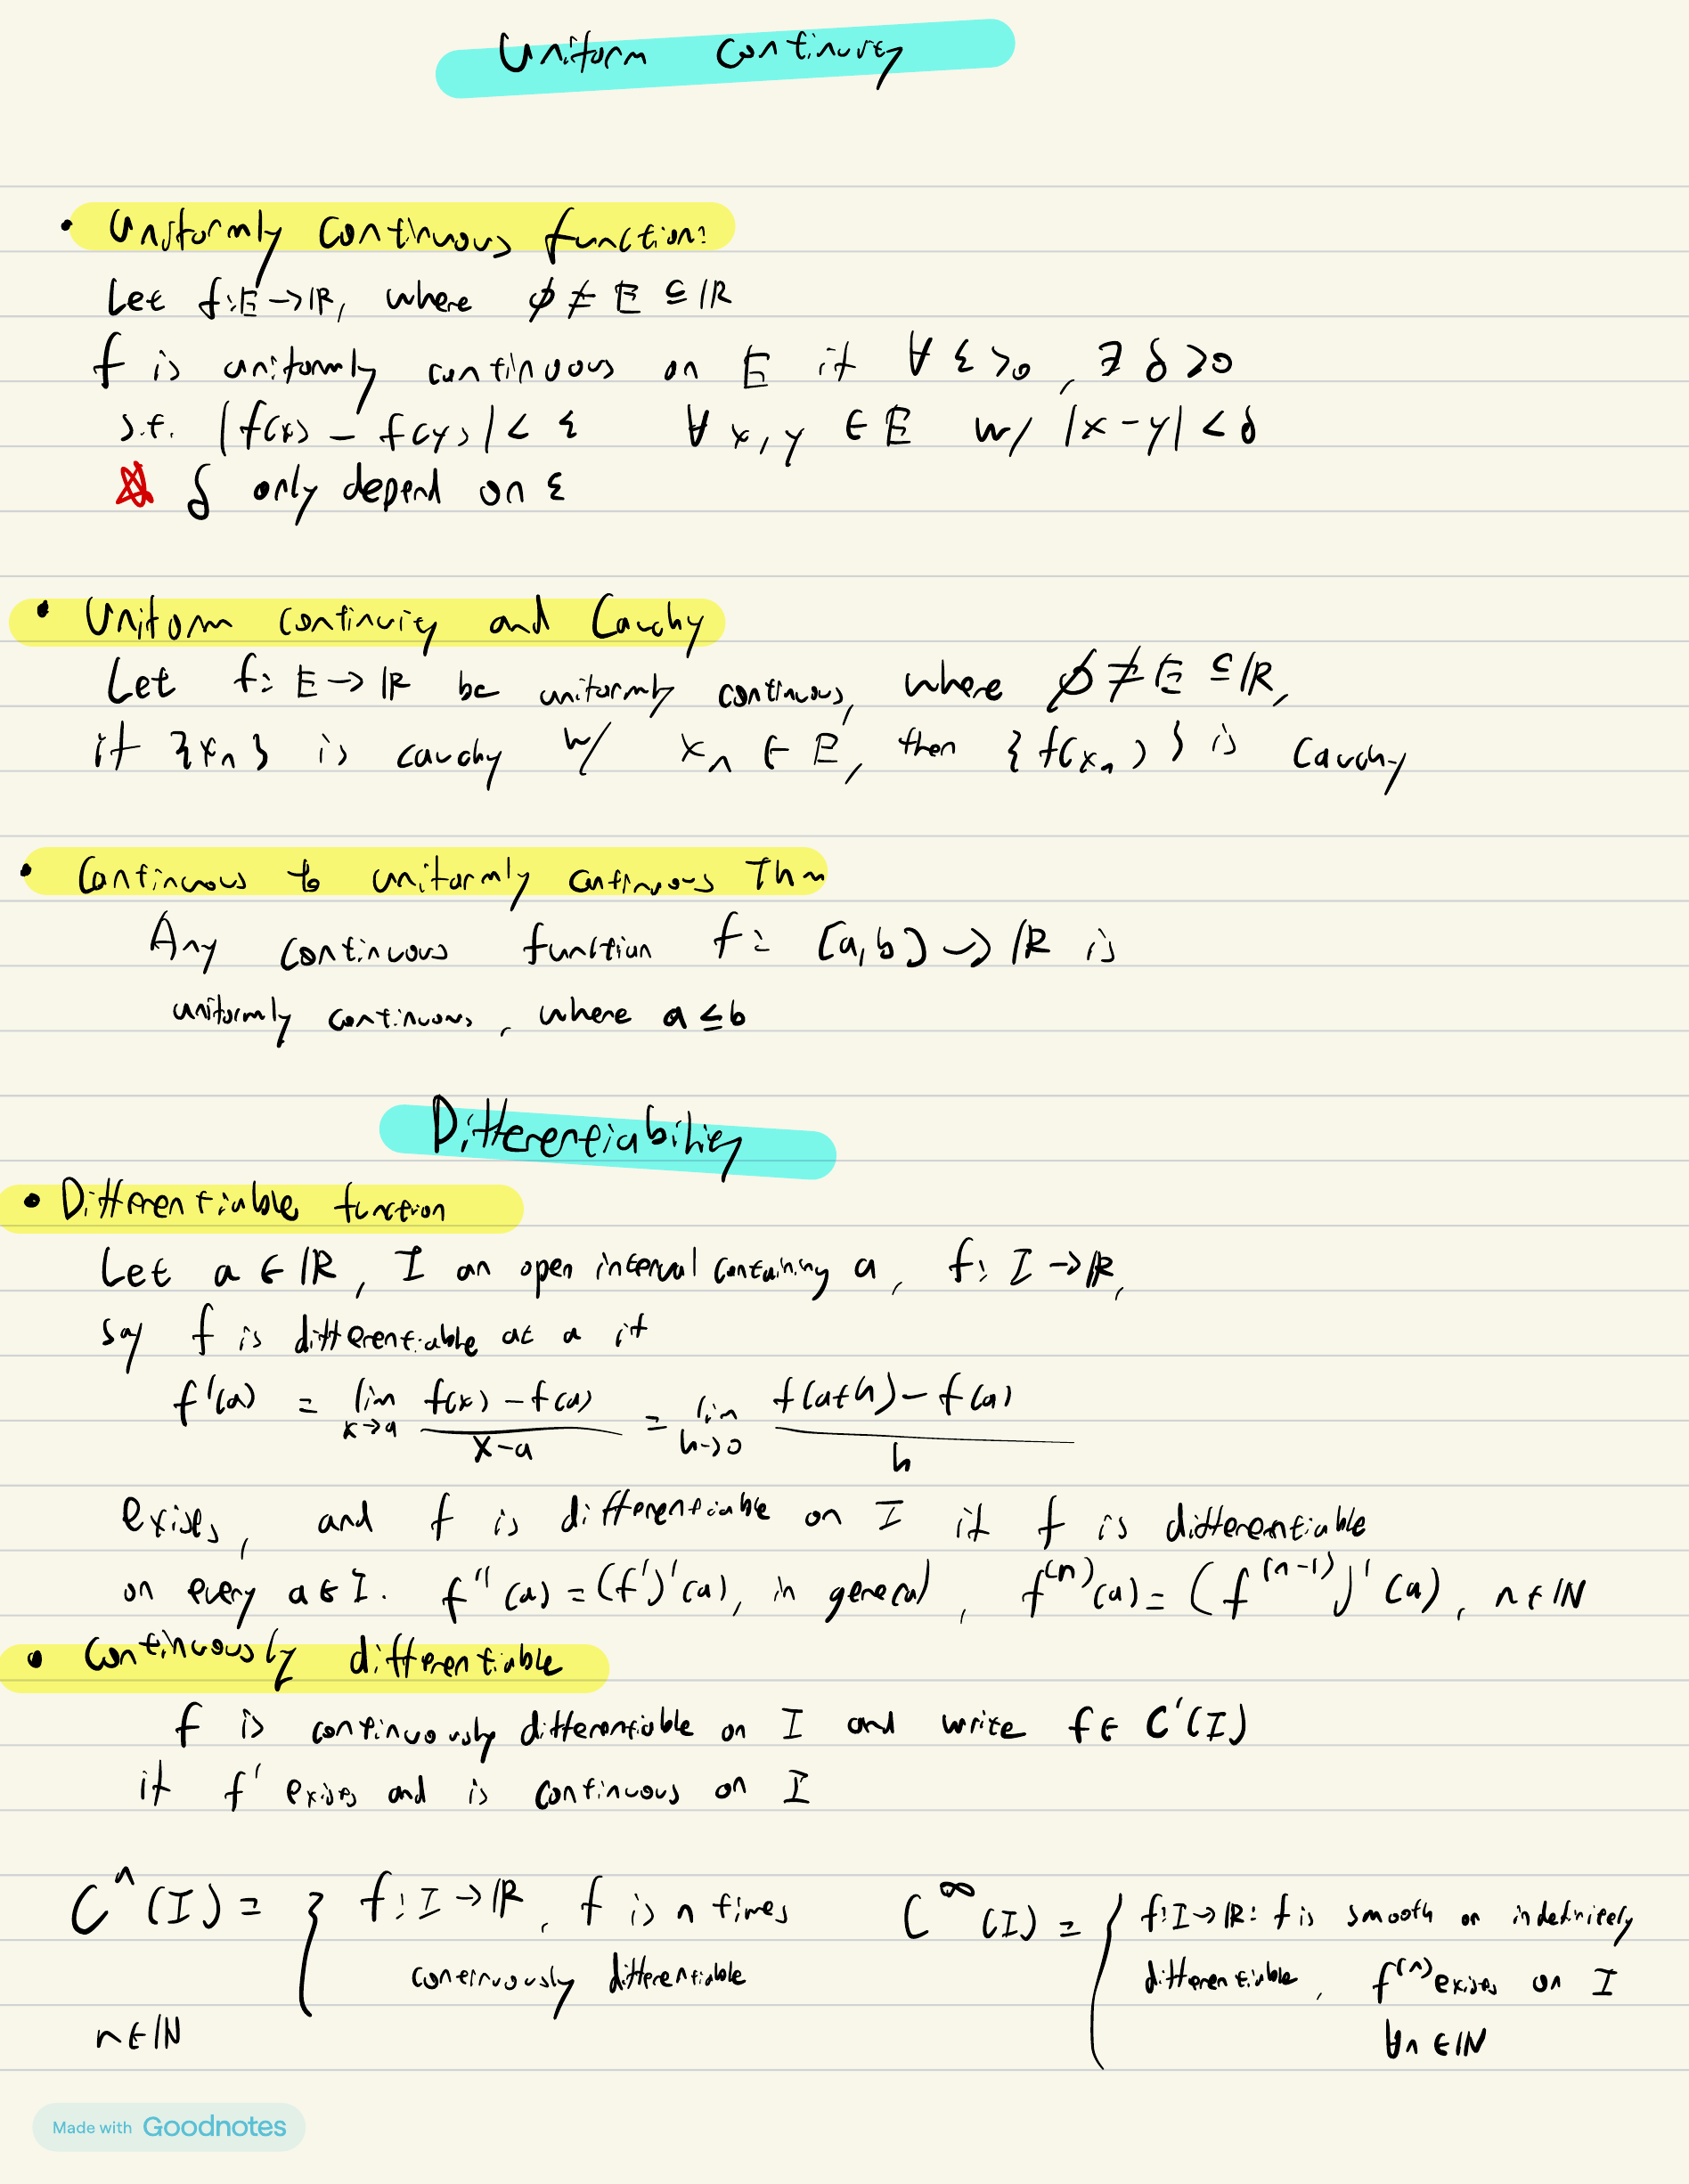 Uniform Continuity
• Uniformly Continuous function:
Let f: E → ℝ, where ∅ ≠ E ⊆ ℝ
f is uniformly continuous on E if ∀ ε > 0, ∃ δ > 0
s.t. |f(x) − f(y)| < ε ∀ x, y ∈ E w/ |x − y| < δ
δ only depend on ε
• Uniform continuity and Cauchy
Let f: E → ℝ be uniformly continuous, where ∅ ≠ E ⊆ ℝ,
if {x_n} is cauchy w/ x_n ∈ E, then {f(x_n)} is Cauchy
• Continuous to uniformly continuous Thm
Any continuous function f: [a,b] → ℝ is
uniformly continuous, where a ≤ b
Differentiability
• Differentiable function
Let a ∈ ℝ, I an open interval containing a, f: I → ℝ,
say f is differentiable at a if
f'(a) = lim_{x→a} (f(x) − f(a))/(x − a) = lim_{h→0} (f(a+h) − f(a))/h
exists, and f is differentiable on I if f is differentiable
on every a ∈ I. f''(a) = (f')'(a), in general, f^(n)(a) = (f^(n−1))'(a), n ∈ ℕ
• Continuously differentiable
f is continuously differentiable on I and write f ∈ C'(I)
if f' exists and is continuous on I
C^n(I) = { f: I → ℝ, f is n times
continuously differentiable
n ∈ ℕ
C^∞(I) = { f: I → ℝ: f is smooth or indefinitely
differentiable, f^(n) exists on I
∀n ∈ ℕ
Made with Goodnotes